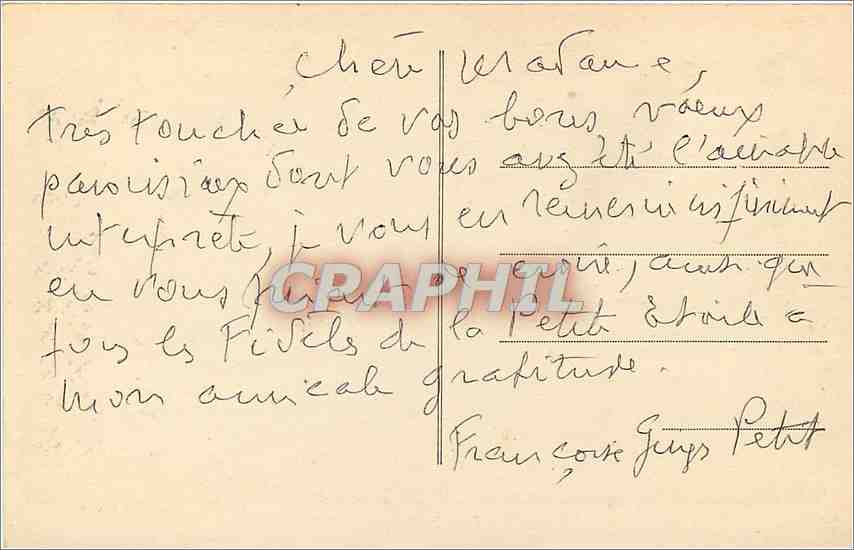 Chère Madame,
très touchée de vos bons voeux
paroissiaux dont vous avez été l'aimable
interprète, je vous en remercie infiniment
en vous priant de croire, ainsi que
CRAPHIL
tous les Fidèles de la Petite Etoile à
mon amicale gratitude.
Françoise Petit